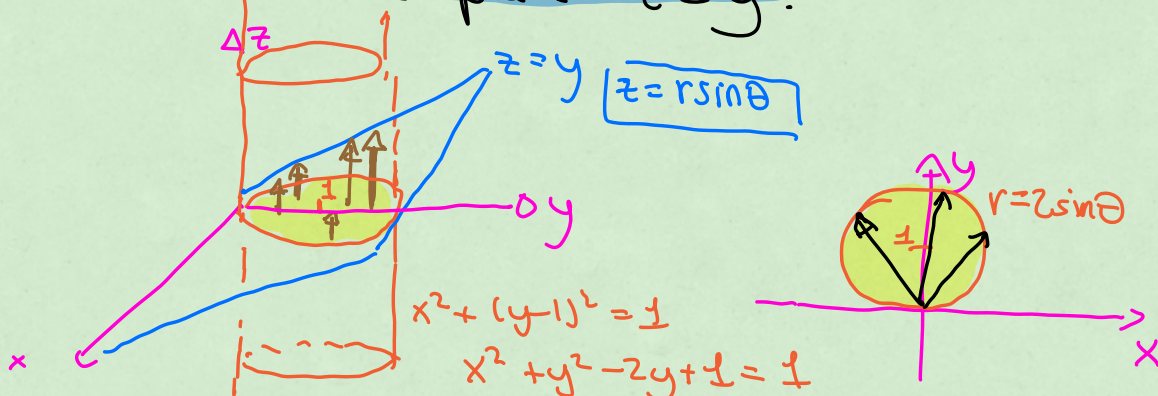 z
z = y
z = rsinθ
1
y
x
x² + (y-1)² = 1
x² + y² - 2y + 1 = 1
y
r = 2sinθ
1
x